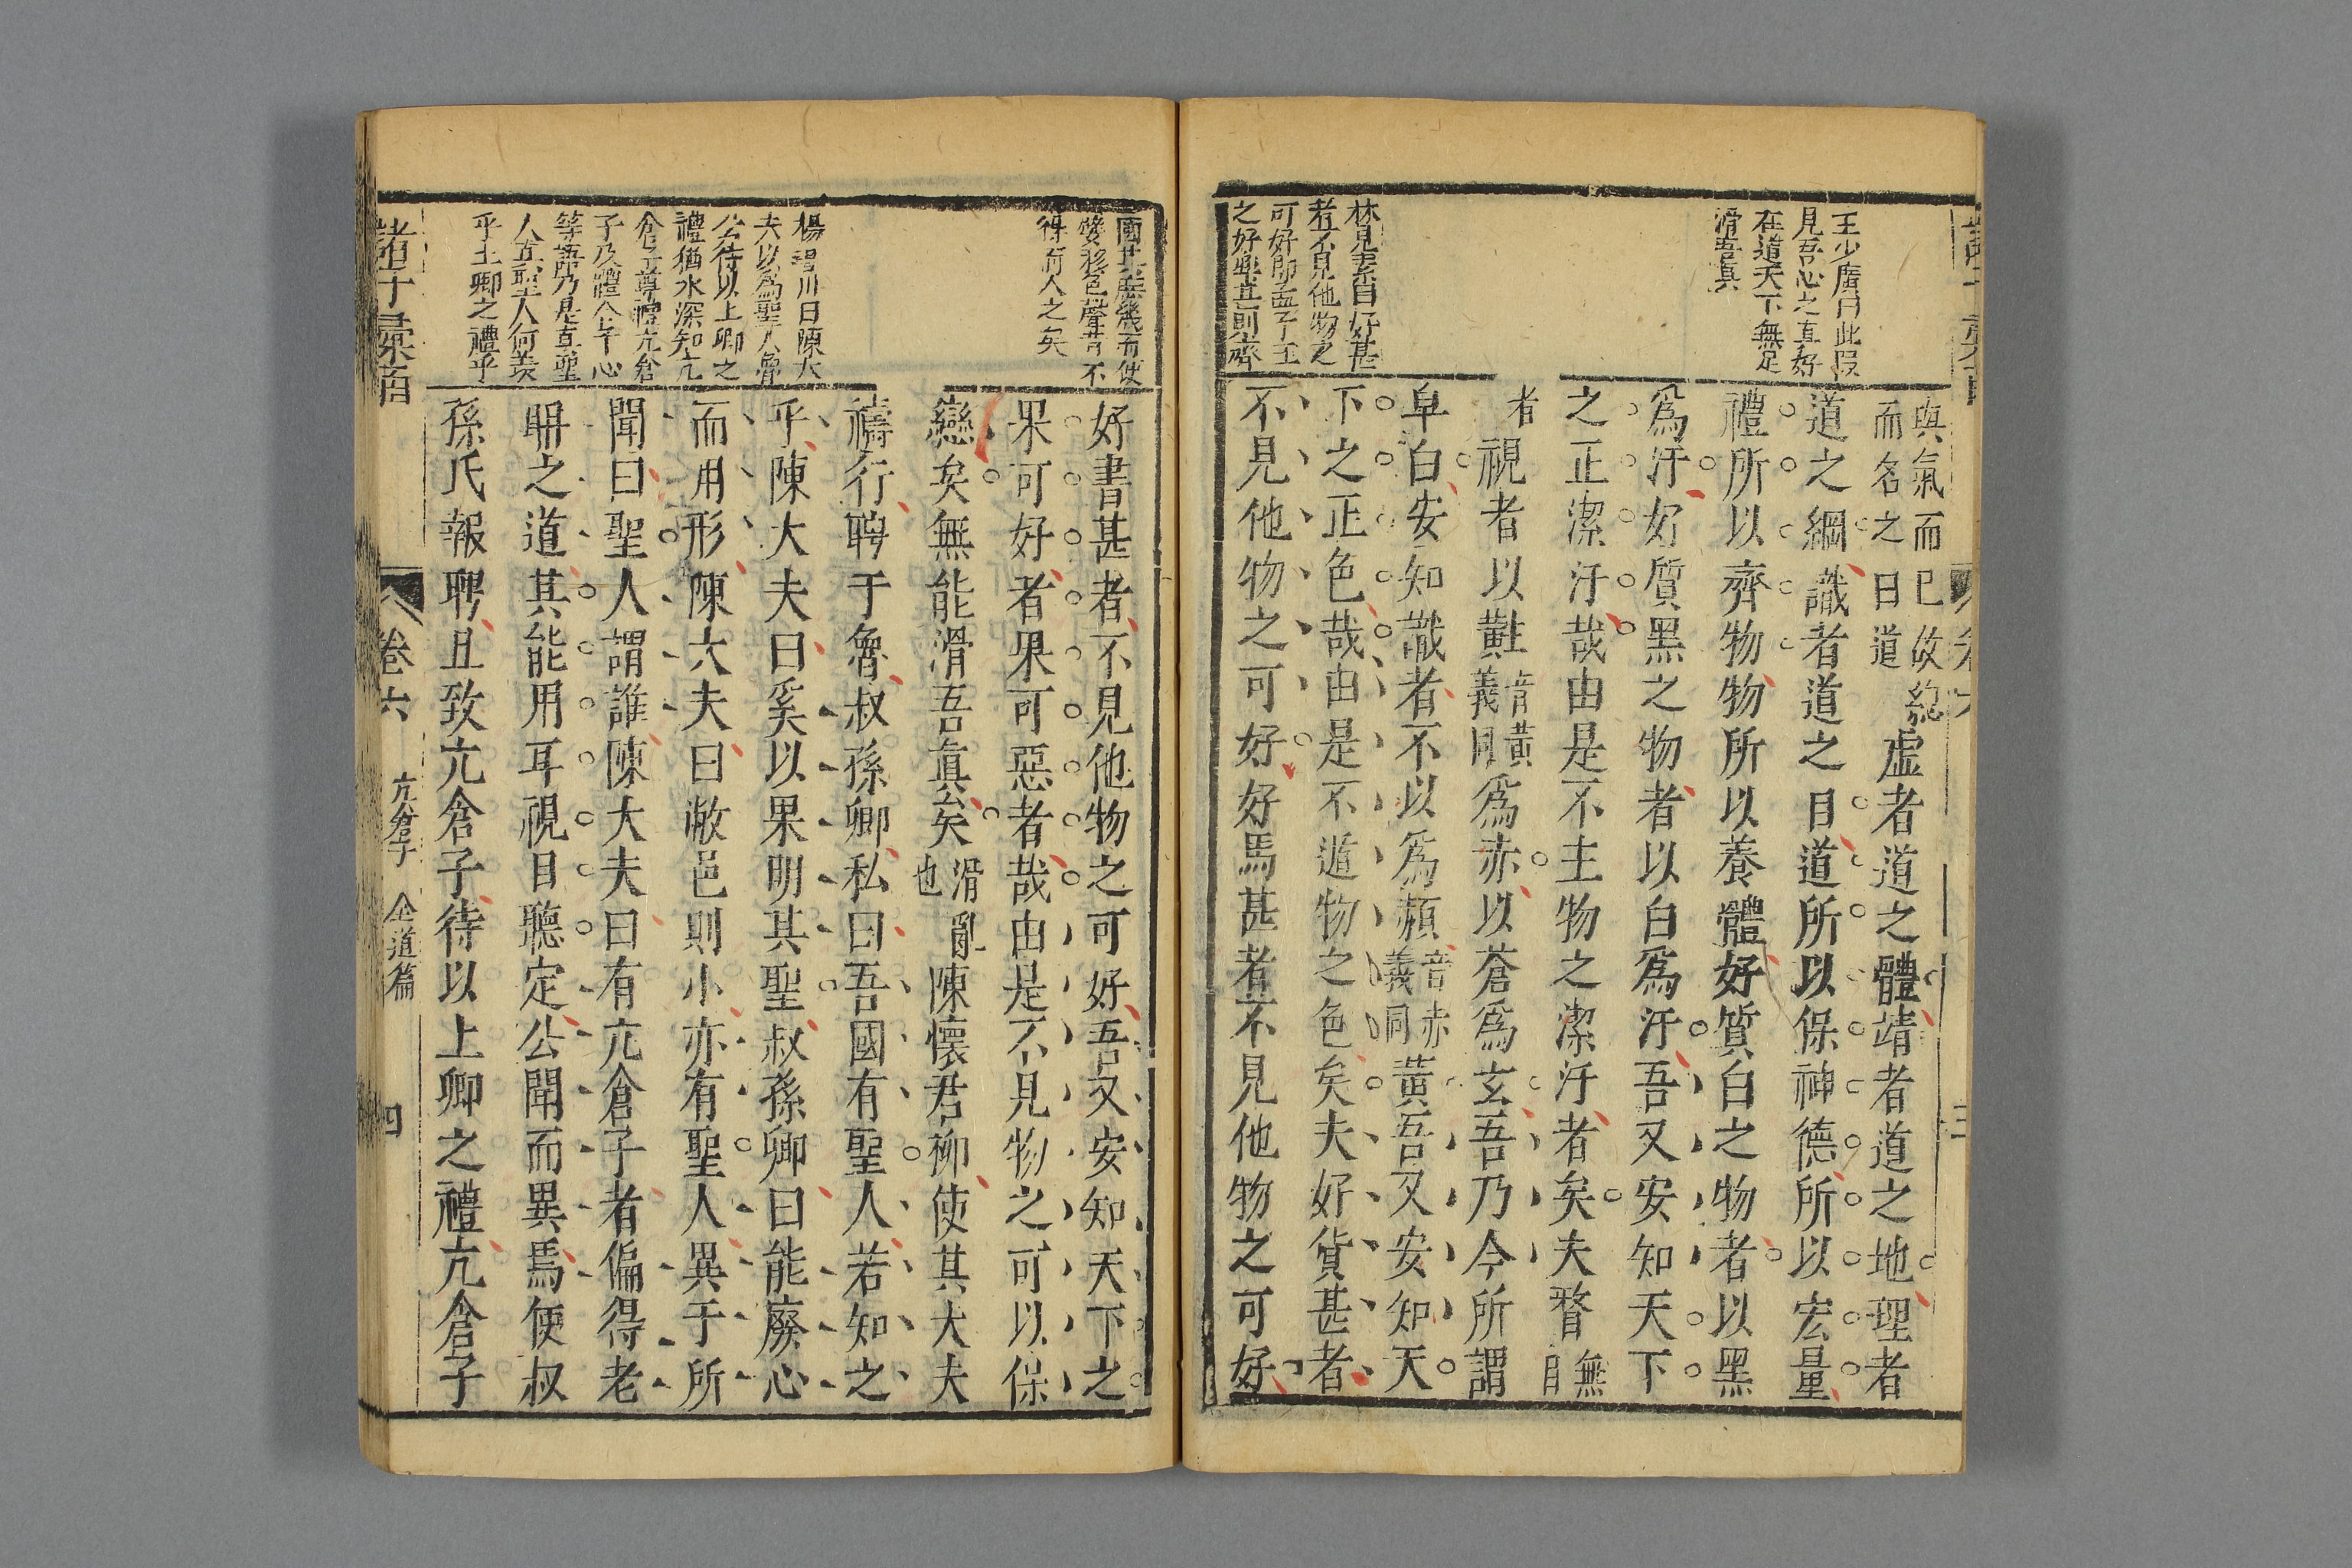 王少廣曰此段
見吾心之真好
在道天下無足
滑吾真
林見素曰好甚
者不見他物之
可好即孟子王
之好樂甚則齊
與氣而已故
而名之曰道
紀虛者道之體靖者道之地理者
道之綱識者道之目道所以保神德所以宏量
禮所以齊物物所以養體好質白之物者以黑
爲汙好質黑之物者以白爲汙吾又安知天下
之正潔汙哉由是不主物之潔汙者矣夫瞀無目
者視者以黈音黃義同爲赤以蒼爲玄吾乃今所謂
皁白安知識者不以爲赬音赤義同黃吾又安知天
下之正色哉由是不遁物之色矣夫好貨甚者
不見他物之可好好馬甚者不見他物之可好
國其庶幾而使
變移色聲昔不
得而人之矣
好書甚者不見他物之可好吾又安知天下之
果可好者果可惡者哉由是不見物之可以保
戀矣無能滑吾眞矣滑亂也陳懷君柳使其大夫
禱行聘于魯叔孫卿私曰吾國有聖人若知之
乎陳大夫曰奚以果明其聖叔孫卿曰能廢心
而用形陳大夫曰敝邑則小亦有聖人異于所
聞曰聖人謂誰陳大夫曰有亢倉子者偏得老
聃之道其能用耳視目聽定公聞而異焉使叔
孫氏報聘且致亢倉子待以上卿之禮亢倉子
川曰陳大
夫以爲聖人魯
公待以上卿之
禮猶水深知亢
倉子尊禮亢倉
子乃體合于心
等語乃是真聖
人真聖人何羨
乎上卿之禮乎
諸子彙函
卷六
亢倉子
全道篇
四